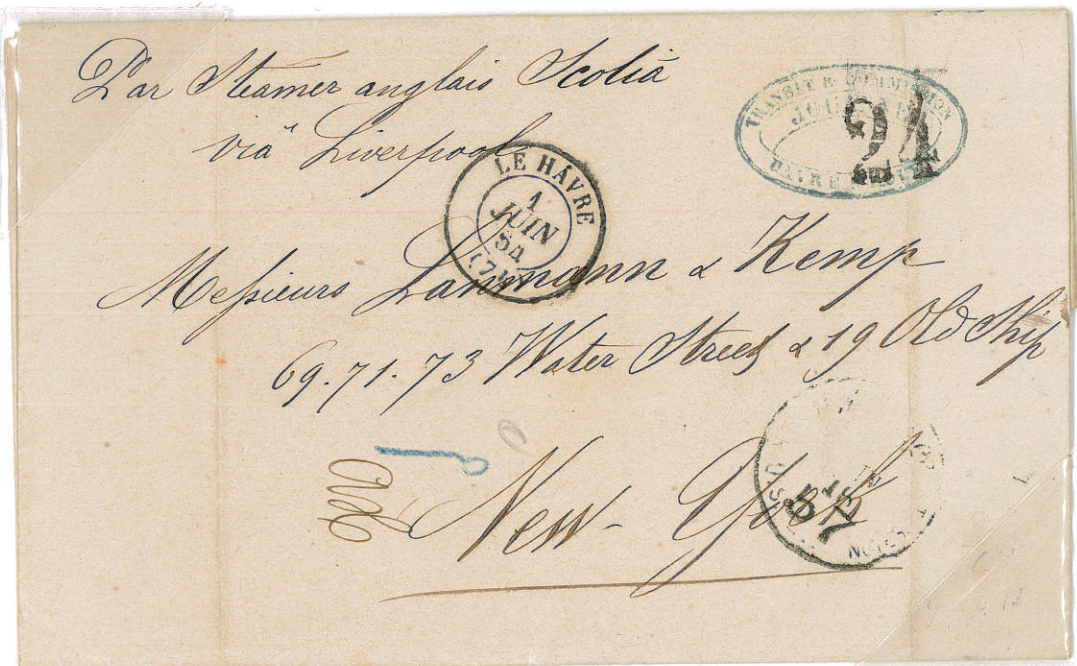 Par Steamer anglais Scotia
viâ Liverpool
TRANSIT & COMMISSION
24
LE HÂVRE
1
JUIN
54
Messieurs Lanmann & Kemp
69.71.73 Water Street & 19 Old Ship
New-York
57
NOTES